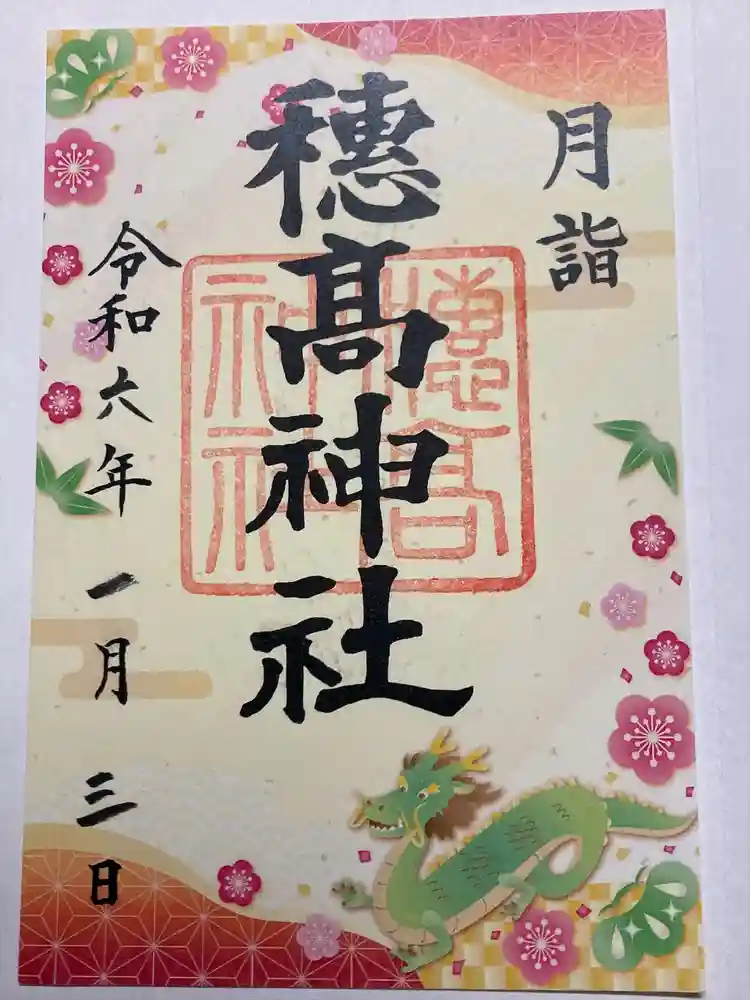 月詣
穗髙神社
穗高
神社
令和六年 一月 三日